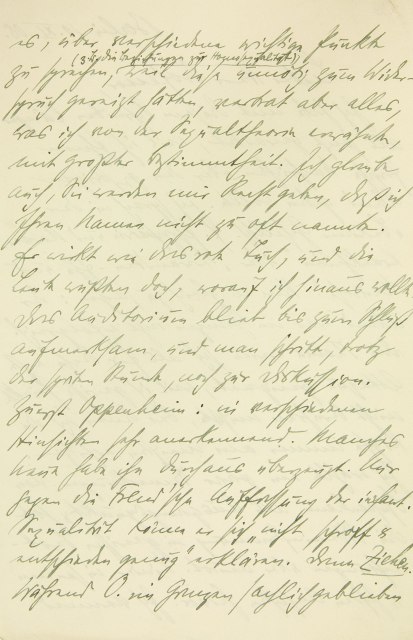 es, über verschiedene wichtige Punkte
(z. B. die Beziehungen zur Homosexualität)
zu sprechen, weil diese unnötig zum Wider-
spruch gereizt hätten, vertrat aber alles,
was ich von der Sexualtheorie erwähnte,
mit größter Bestimmtheit. Ich glaube
auch, Sie werden mir Recht geben, daß ich
Ihren Namen nicht zu oft nannte.
Er wirkt wie das rote Tuch, und die
Leute wußten doch, worauf ich hinaus wollte.
Das Auditorium blieb bis zum Schluß
aufmerksam, und man schritt, trotz
der späten Stunde, noch zur Diskussion.
Zuerst Oppenheim: in verschiedenen
Hinsichten sehr anerkennend. Manches
Neue habe ihn durchaus überzeugt. Nur
gegen die Freud'sche Auffassung der infant.
Sexualität könne er sich „nicht schroff &
entschieden genug“ erklären. Dann Ziehen.
Während O. im Ganzen sachlich geblieben